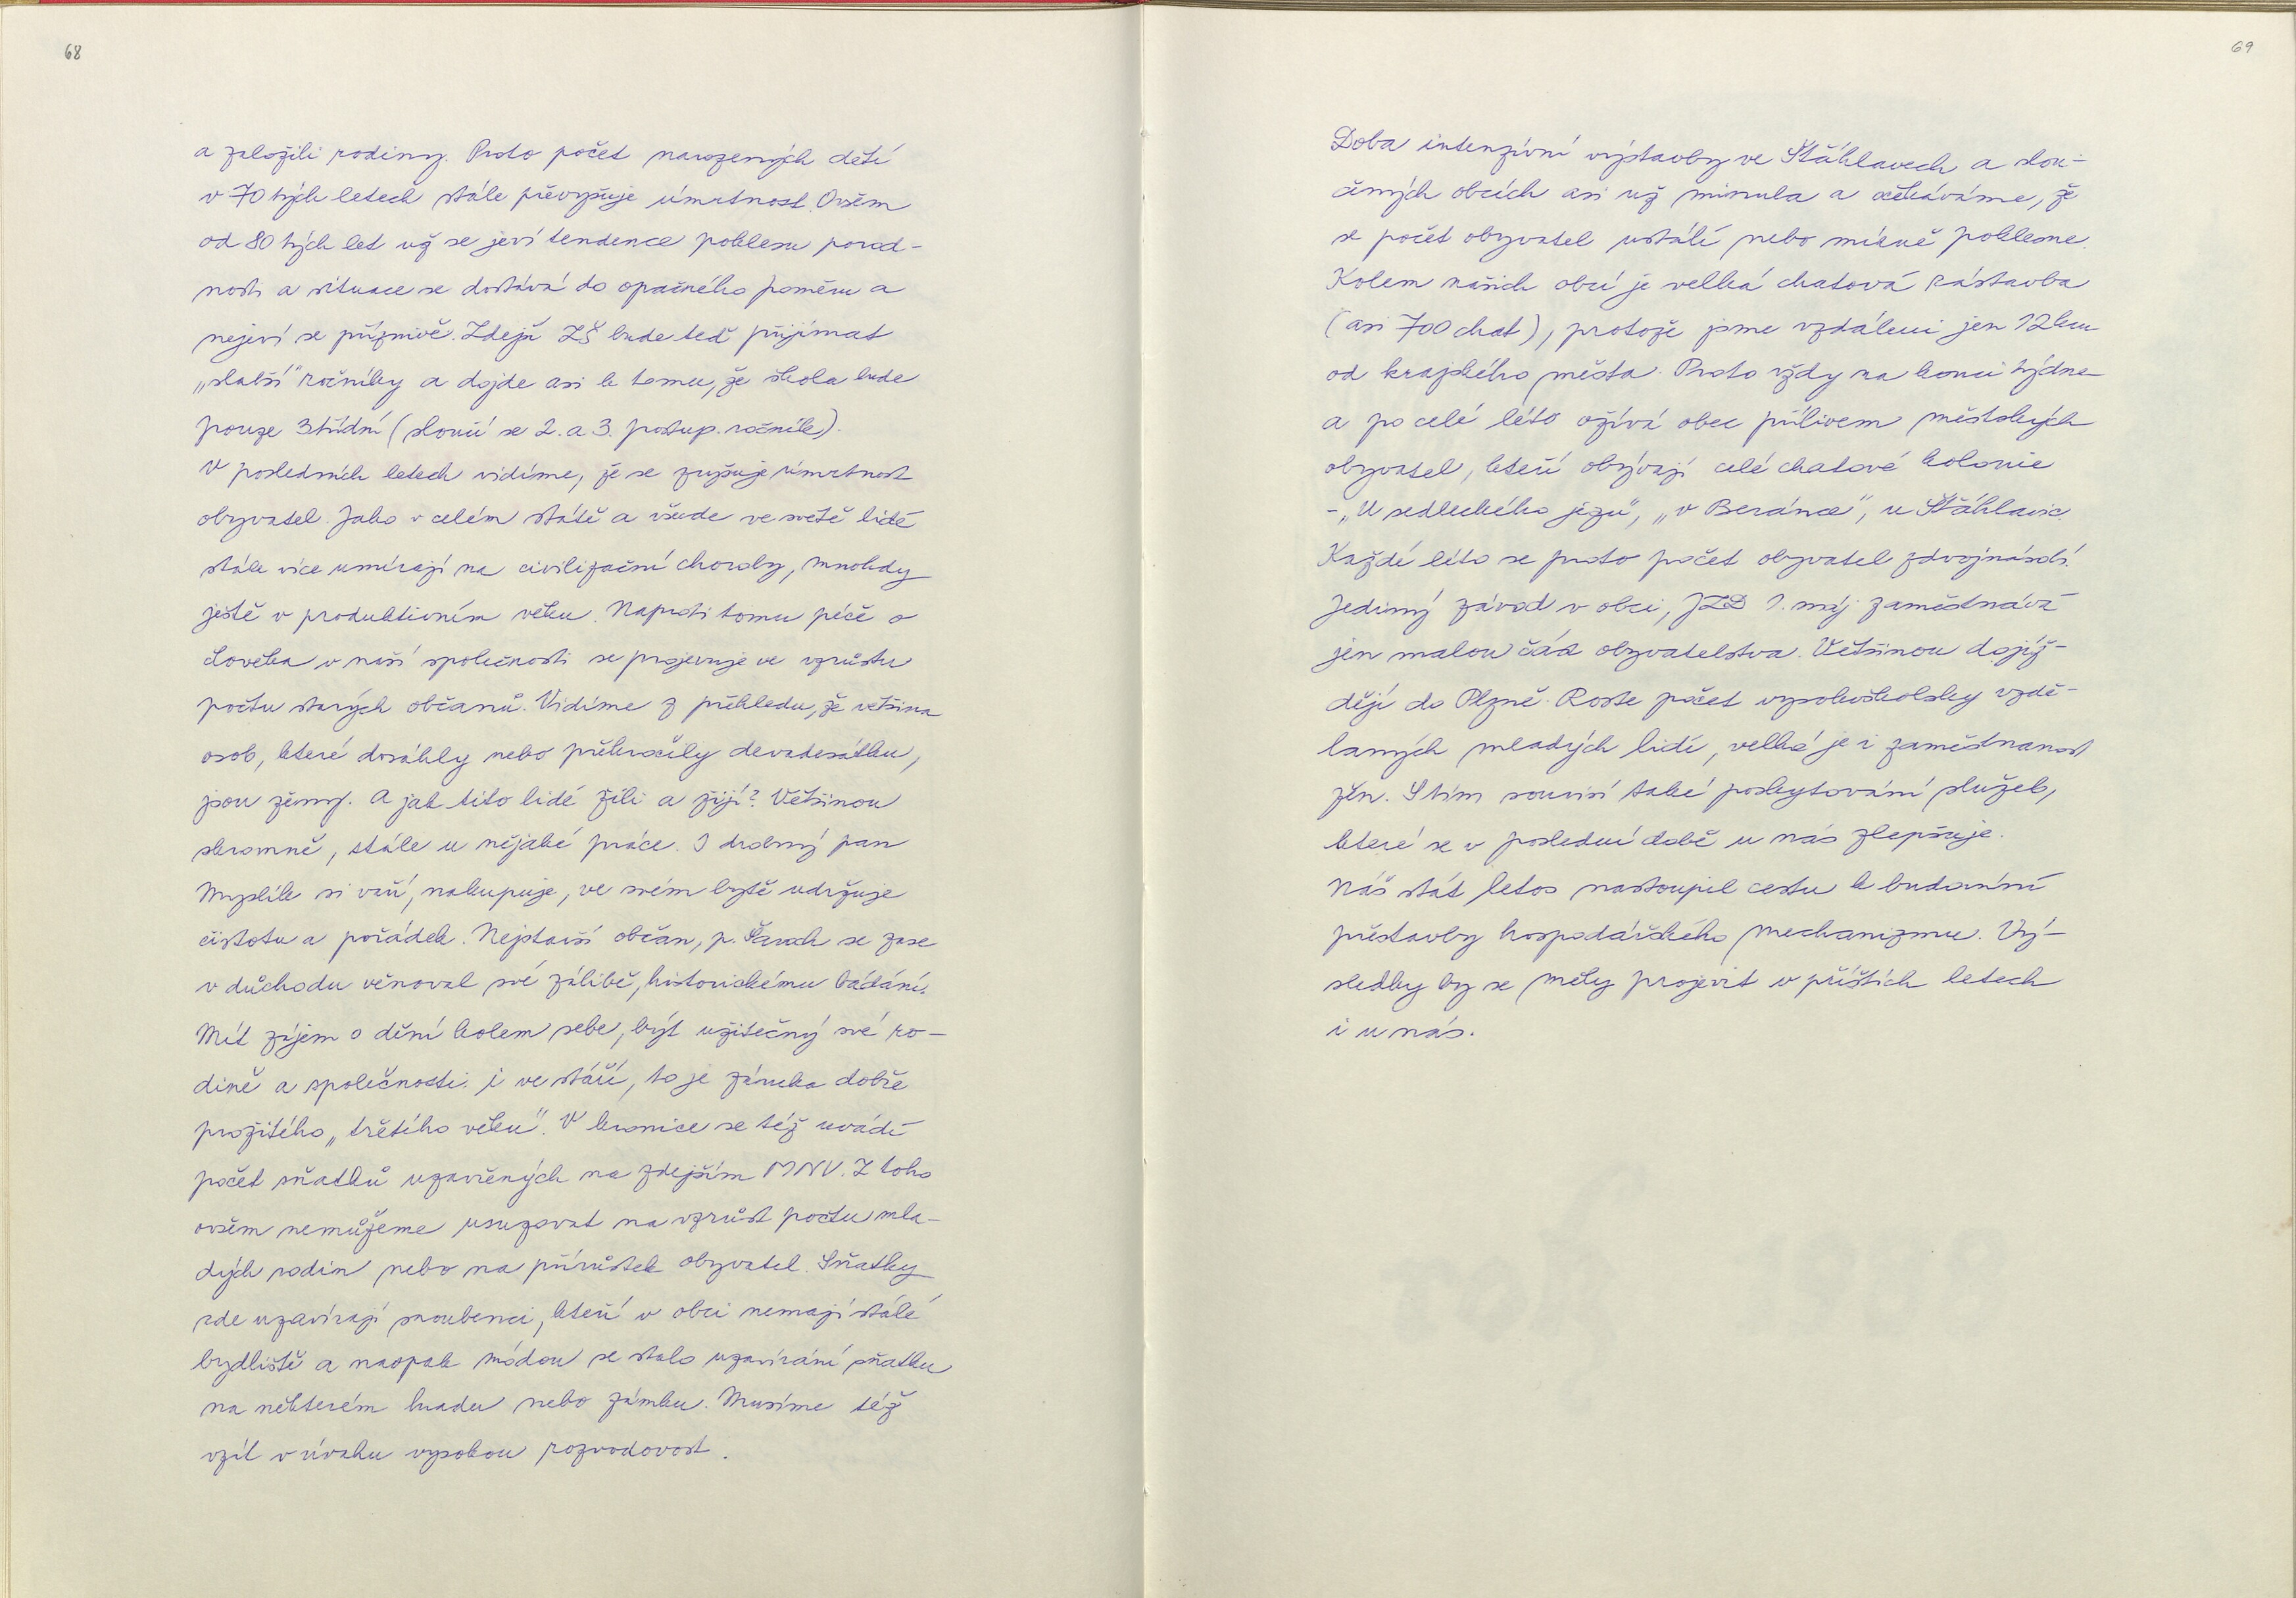 68
a založili rodiny. Proto počet narozených dětí
v 70tých letech stále převyšuje úmrtnost. Ovšem
od 80tých let už se jeví tendence poklesu porod-
nosti a situace se dostává do opačného poměru a
nejeví se příznivě. Zdejší ZŠ bude teď přijímat
„slabší" ročníky a dojde asi k tomu, že škola bude
pouze 3třídní (sloučí se 2. a 3. postup. ročník).
V posledních letech vidíme, že se zvyšuje úmrtnost
obyvatel. Jako v celém státě a všude ve světě lidé
stále více umírají na civilizační choroby, mnohdy
ještě v produktivním věku. Naproti tomu péče o
člověka v naší společnosti se projevuje ve vzrůstu
počtu starých občanů. Vidíme z přehledu, že většina
osob, které dosáhly nebo překročily devadesátku,
jsou ženy. A jak tito lidé žili a žijí? Většinou
skromně, stále u nějaké práce. I drobný pan
Myslík si vaří, nakupuje, ve svém bytě udržuje
čistotu a pořádek. Nejstarší občan, p. Šavoch se zase
v důchodu věnoval své zálibě, historickému bádání.
Mít zájem o dění kolem sebe, být užitečný své ro-
dině a společnosti i ve stáří, to je záruka dobře
prožitého „třetího věku". V kronice se též uvádí
počet sňatků uzavřených na zdejším MNV. Z toho
ovšem nemůžeme usuzovat na vzrůst počtu mla-
dých rodin nebo na přírůstek obyvatel. Sňatky
zde uzavírají snoubenci, kteří v obci nemají stálé
bydliště a naopak módou se stalo uzavírání sňatku
na některém hradu nebo zámku. Musíme též
vzít v úvahu vysokou rozvodovost.
69
Doba intenzívní výstavby ve Šťáhlavech a slou-
čených obcích asi už minula a očekáváme, že
se počet obyvatel ustálí nebo mírně poklesne.
Kolem našich obcí je velká chatová zástavba
(asi 700 chat), protože jsme vzdáleni jen 12 km
od krajského města. Proto vždy na konci týdne
a po celé léto ožívá obec přílivem městských
obyvatel, kteří obývají celé chatové kolonie
- „U sedleckého jezu", „v Beránce", u Šťáhlavic.
Každé léto se proto počet obyvatel zdvojnásobí.
Jediný závod v obci, JZD 1. máj zaměstnává
jen malou část obyvatelstva. Většinou dojíž-
dějí do Plzně. Roste počet vysokoškolsky vzdě-
laných mladých lidí, velká je i zaměstnanost
žen. S tím souvisí také poskytování služeb,
které se v poslední době u nás zlepšuje.
Náš stát letos nastoupil cestu k budování
přestavby hospodářského mechanizmu. Vý-
sledky by se měly projevit v příštích letech
i u nás.